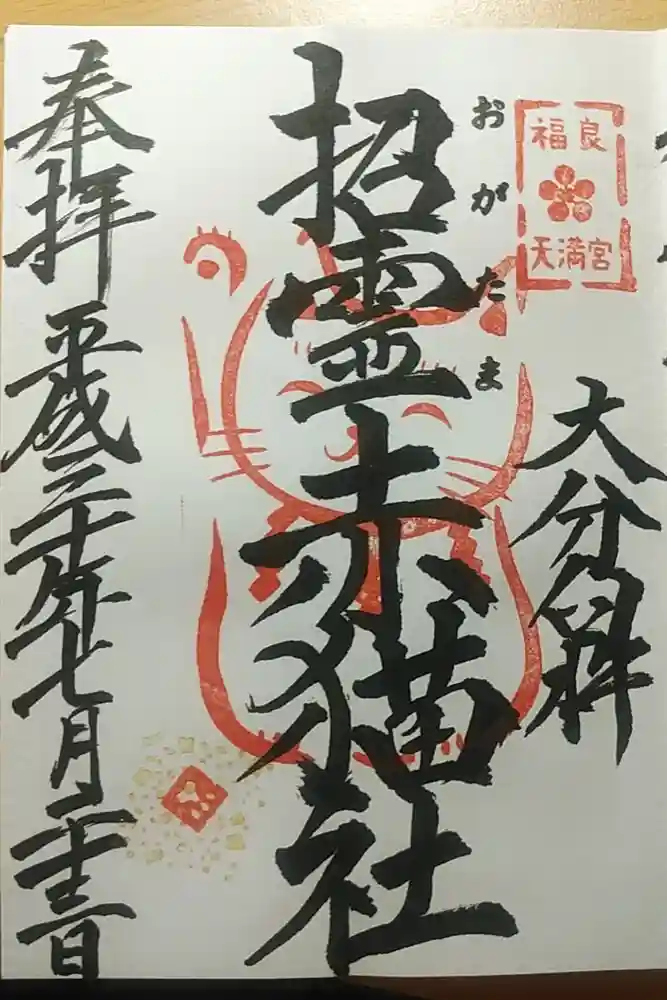 福良
天満宮
大分臼杵
おがたま
招霊赤猫社
奉拝 平成三十年七月二十三日